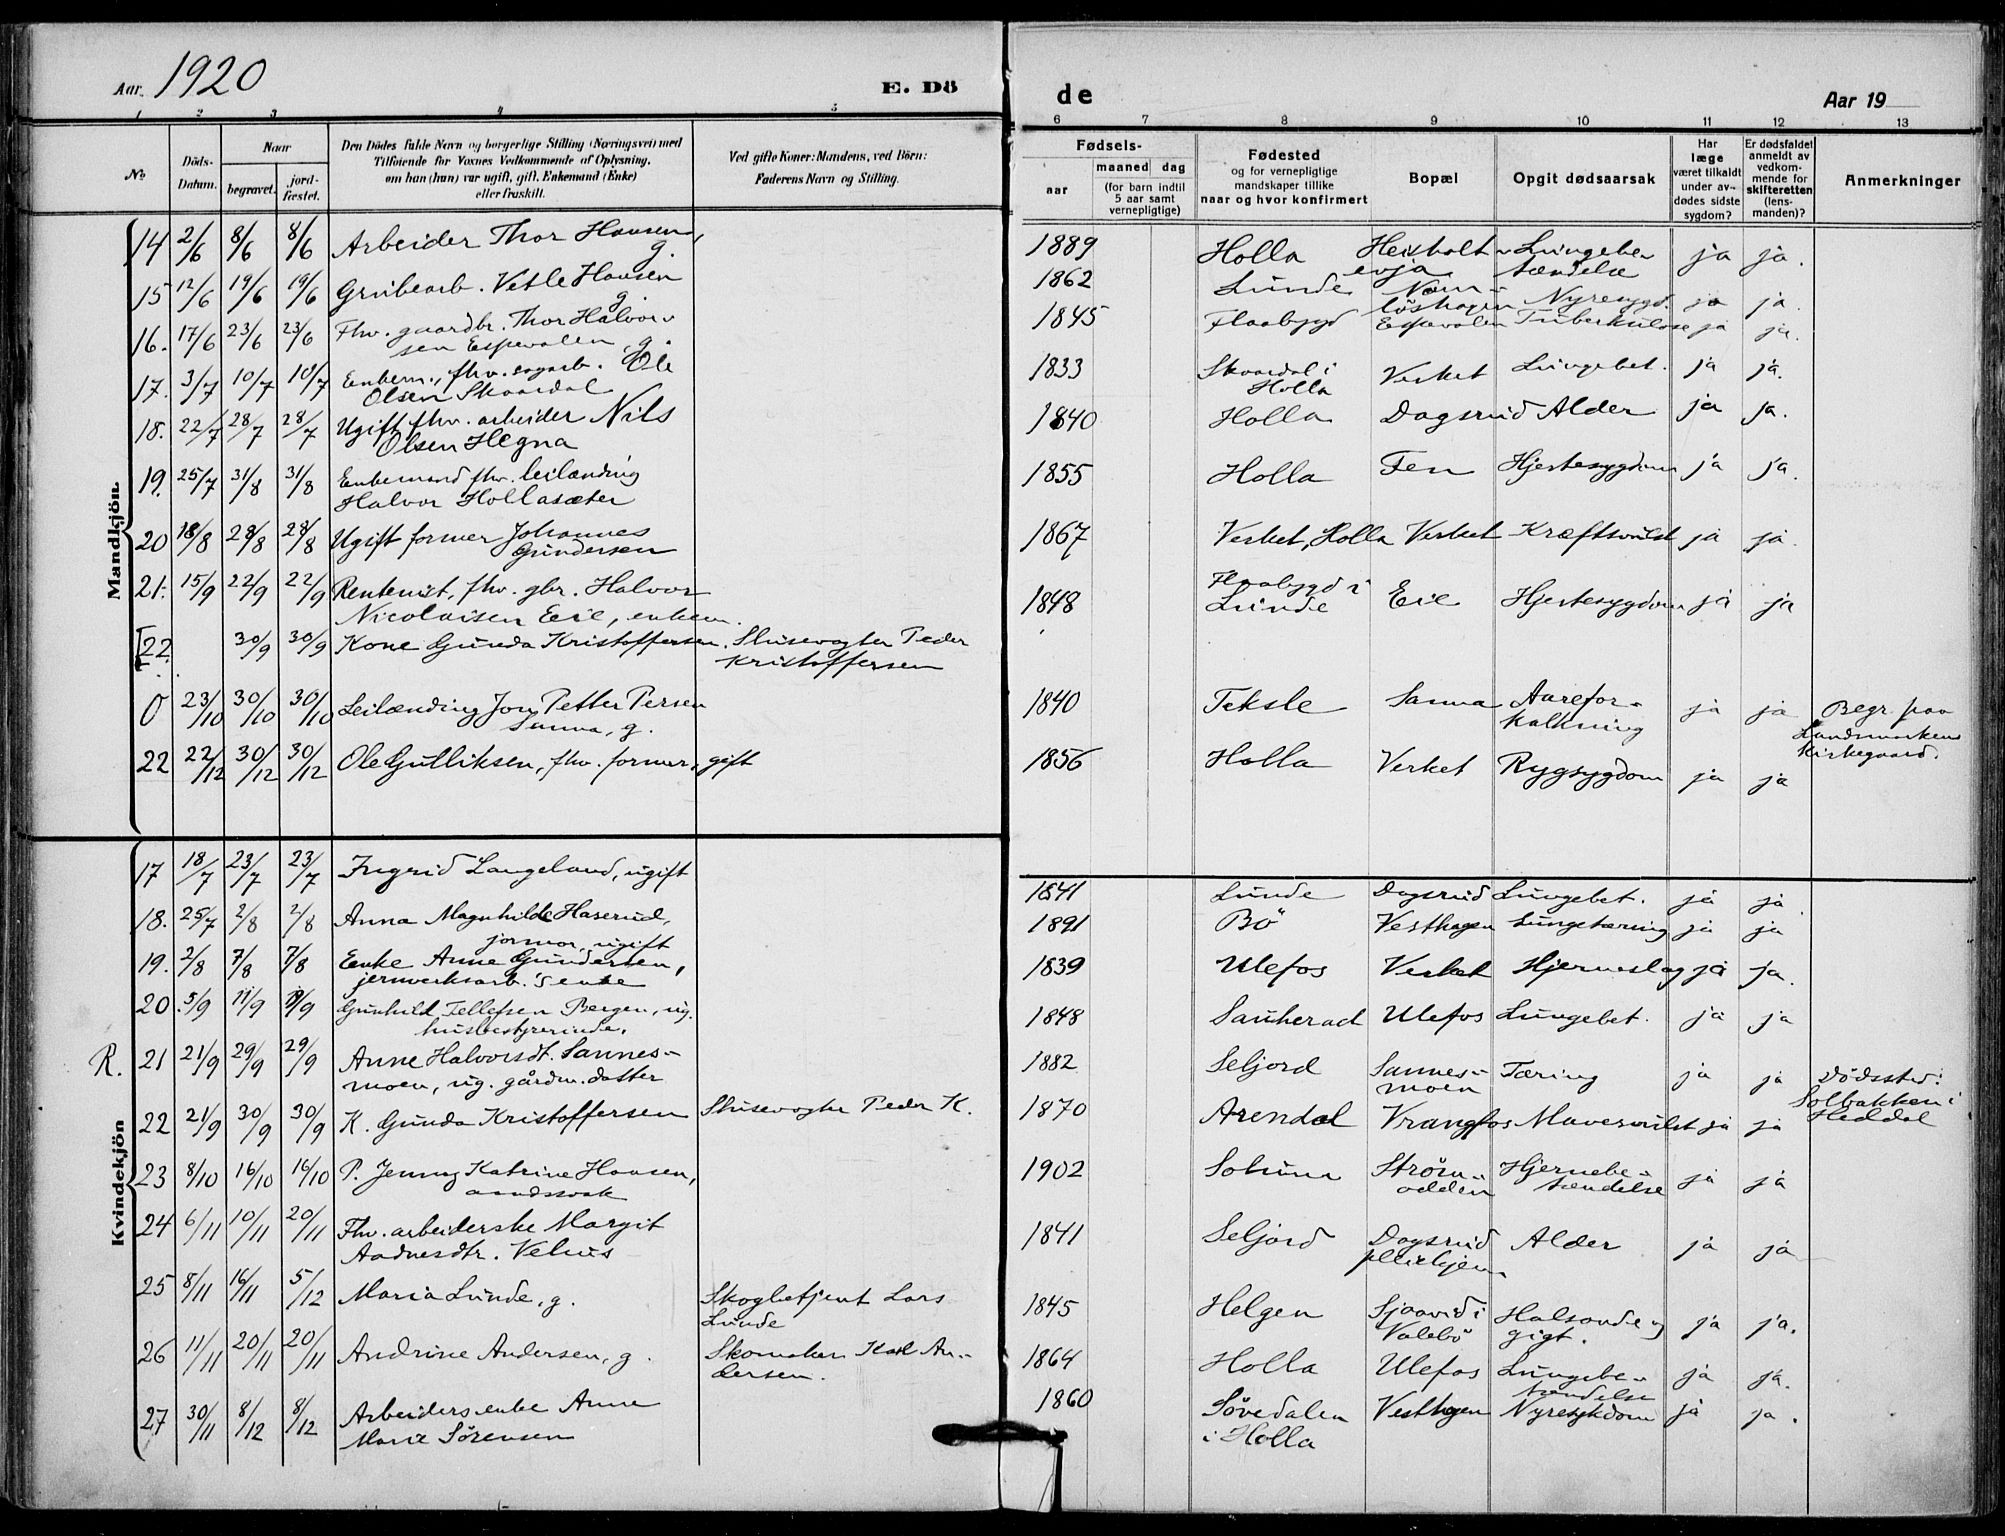 Aar. 1920
E. Dö
de
Aar 19
1 2 3 4 5 6 7 8 9 10 11 12 13
No
Döds-Datum.
Naar
begravet.
jord-fæstet.
Den Dödes fulde Navn og borgerlige Stilling (Næringsvei) med
Tilföiende for Voxnes Vedkommende af Oplysning,
om han (hun) var ugift, gift, Enkemand (Enke)
eller fraskilt.
Ved gifte Koner: Mandens, ved Börn:
Faderens Navn og Stilling.
Fødsels-
aar
maaned dag
(for barn indtil
5 aar samt
vernepligtige)
Fødested
og for vernepligtige
mandskaper tillike
naar og hvor konfirmert
Bopæl
Opgit dødsaarsak
Har
læge
været tilkaldt
under av-
dødes sidste
sygdom?
Er dødsfaldet
anmeldt av
vedkom-
mende for
skifteretten
(lens-
manden)?
Anmerkninger
Mandkjön
14 2/6 8/6 8/6 Arbeider Thor Hansen, g. 1889 Holla Heisholt- Lungebe-tændelse ja ja.
15 12/6 19/6 19/6 Grubearb. Vetle Hansen g. 1862 Lunde Nyresygd. ja ja.
16. 17/6 23/6 23/6 Fhv. gaardbr. Thor Halvor-
sen Espevalen, g. 1845 Flaabygd Espevalen Tuberkulose ja ja.
17. 3/7 10/7 10/7 Enkem., fhv. sagarb. Ole
Olsen Skaardal 1833 Skaardal i Holla Verket Lungebet. ja ja.
18. 22/7 28/7 28/7 Ugift fhv. arbeider Nils
Olsen Hegna 1840 Holla Dagsrud Alder ja ja.
19. 25/7 31/8 31/8 Enkemand fhv. leilænding
Halvor Hollasæter 1855 Holla Fen Hjertesygdom ja ja.
20 18/8 28/8 28/8 Ugift former Johannes
Gundersen 1867 Verket, Holla Verket Kræftsvulst ja ja.
21. 15/9 22/9 22/9 Rentenist, fhv. gbr. Halvor
Nicolaisen Eie, enkem. 1848 Flaabygd i Lunde Eie Hjertesygdom ja ja
[22. 30/9 30/9 Kone Gunda Kristoffersen. Slusevogter Peder
Kristoffersen
0 23/10 30/10 30/10 Leilænding Jon Petter Persen
Sanna, g. 1840 Teksle Sanna Aarefor-
kalkning ja ja Begr. paa
Landsmarkens
Kirkegaard.
22 22/12 30/12 30/12 Ole Gulliksen, fhv. former, gift 1856 Holla Verket Rygsygdom ja ja
Kvindekjön
17 18/7 23/7 23/7 Ingrid Langeland, ugift 1841 Lunde Dagsrud Lungebet. ja ja
18. 25/7 2/8 2/8 Anna Magnhilde Haserud,
jormor, ugift 1891 Bö Vesthagen Lungetæring ja ja
19. 2/8 7/8 7/8 Enke Anne Gundersen,
jernverksarb.'s enke 1839 Ulefos Verket Hjerneslag ja ja.
20 5/9 11/9 11/9 Gunhild Tellefsen Bergen, ug.
husbestyrerinde. 1848 Sauherad Ulefos Lungebet. ja ja
R. 21 21/9 29/9 29/9 Anne Halvorsdt. Sannes-
moen, ug. gårdm. datter 1882 Seljord Sannes-
moen Tæring ja ja Dödssted:
Solbakken i
Heddal
22 21/9 30/9 30/9 K. Gunda Kristoffersen Slusevogter Peder K. 1870 Arendal Vrangfos Mavesvulst ja ja
23 8/10 16/10 16/10 P. Jenny Katrine Hansen,
aandssvak 1902 Solum Ström-
odden Hjernebe-
tændelse ja ja
24 6/11 10/11 20/11 Fhv. arbeiderske Margit
Aadnesdtr. 1841 Seljord Dagsrud
pleiehjem Alder ja ja
25 8/11 16/11 5/12 Maria Lunde, g. Skogbetjent Lars
Lunde 1845 Helgen i
Valebö Halsonde og
gigt. ja ja.
26 11/11 20/11 20/11 Andrine Andersen, g. Skomaker Karl An-
dersen. 1864 Holla Ulefos Lungebe-
tændelse ja ja.
27 30/11 8/12 8/12 Arbeiders enke Anne
Marie Sörensen 1860 Sövedalen
i Holla Vesthagen Nyresykdom ja ja.